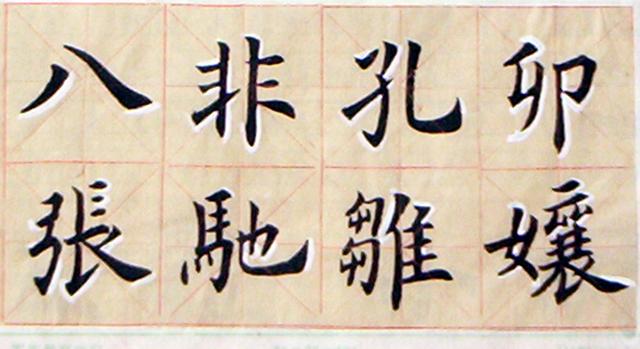 八非孔卯
張馳雛孃